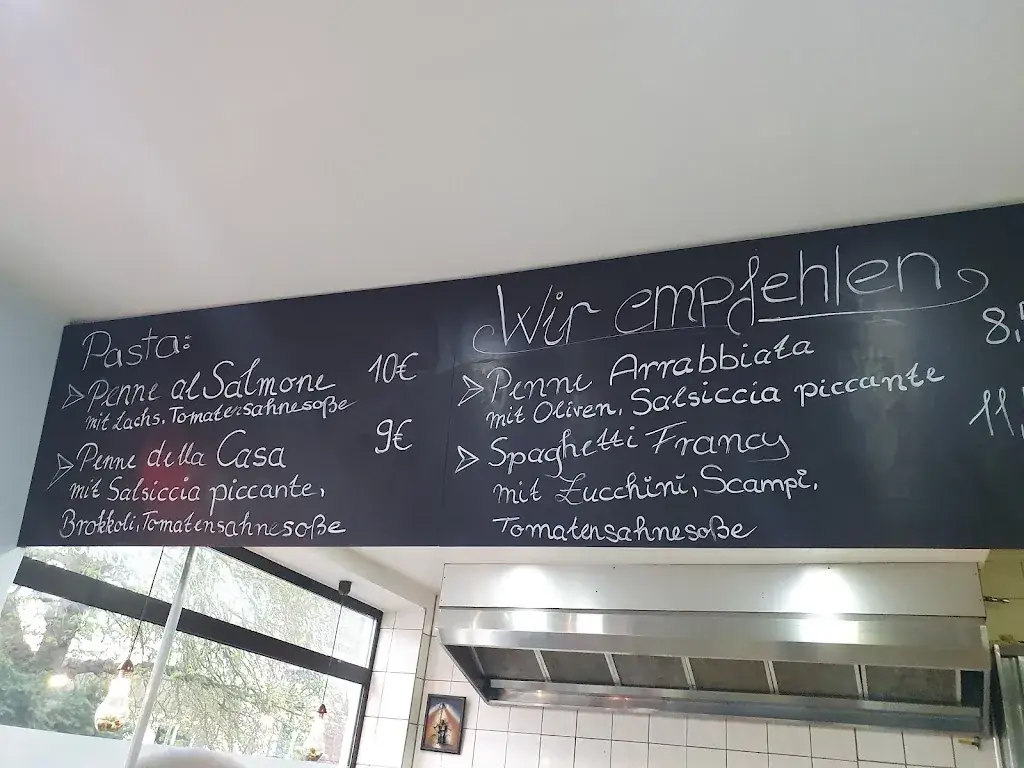 Pasta:
Penne al Salmone 10€
mit Lachs, Tomatensahnesoße
Penne della Casa 9€
mit Salsiccia piccante,
Brokkoli, Tomatensahnesoße
Wir empfehlen
Penne Arrabbiata
mit Oliven, Salsiccia piccante
Spaghetti Francy
mit Zucchini, Scampi,
Tomatensahnesoße